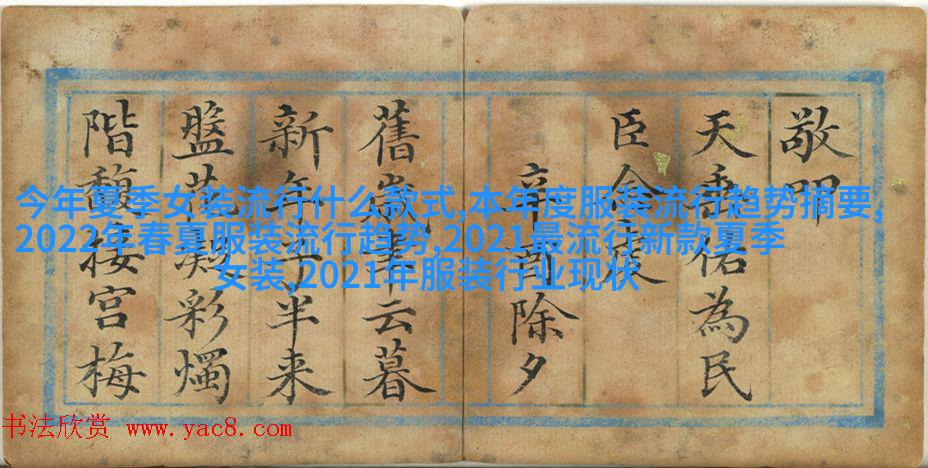 敬叩
天垂佑為民
臣金
辛酉除夕
舊歲華云暮
新年子半来
盤花彩燭
階馥接宮梅
今年夏季女装流行什么款式,本年度服装流行趋势摘要,
2022年春夏服装流行趋势,2021最流行新款夏季
女装,2021年服装行业现状
书法欣赏 www.yac8.com